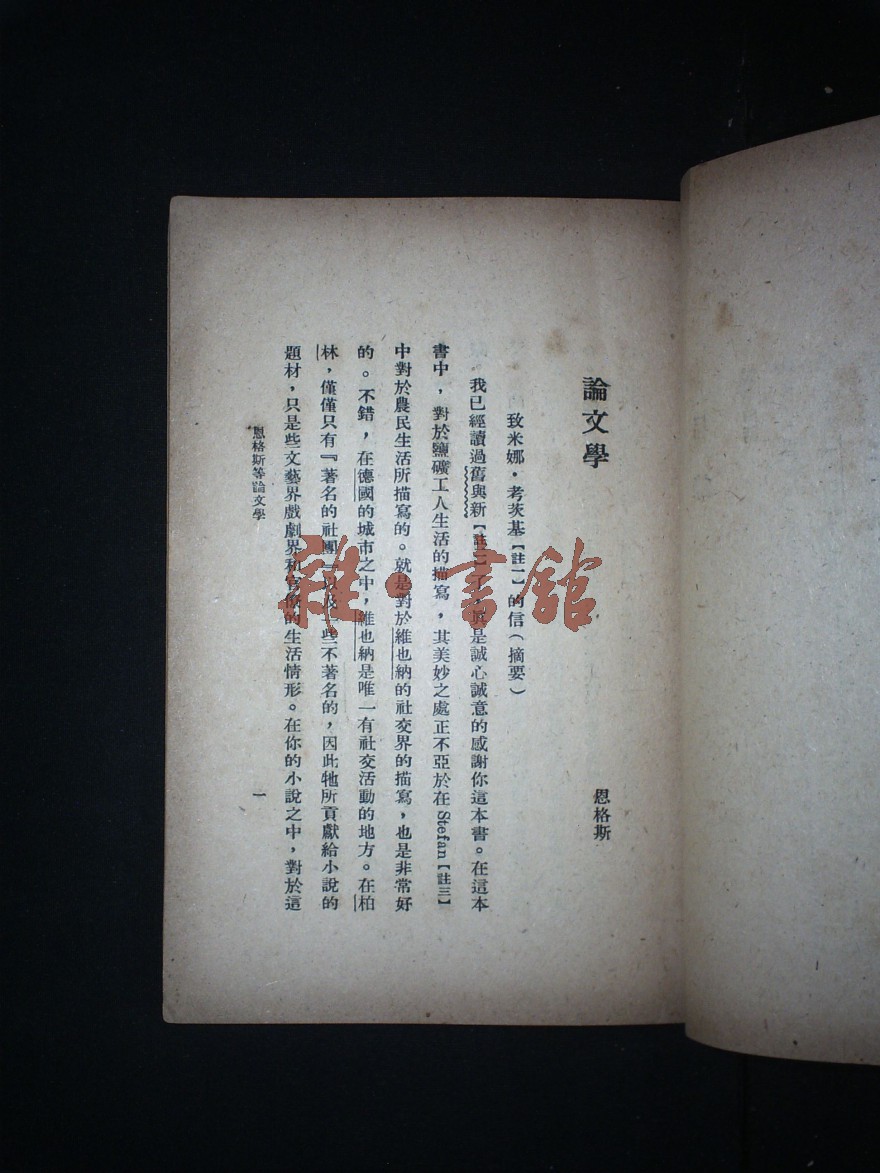 論文學
恩格斯
致米娜·考茨基【註一】的信(摘要)
我已經讀過舊與新【註二】了，眞是誠心誠意的感謝你這本書。在這本
書中，對於鹽礦工人生活的描寫，其美妙之處正不亞於在Stefan【註三】
中對於農民生活所描寫的。就是對於維也納的社交界的描寫，也是非常好
的。不錯，在德國的城市之中，維也納是唯一有社交活動的地方。在柏
林，僅僅只有『著名的社團』以及一些不著名的，因此牠所貢獻給小說的
題材，只是些文藝界戲劇界和官僚的生活情形。在你的小說之中，對於這
恩格斯等論文學
一
雜·書館